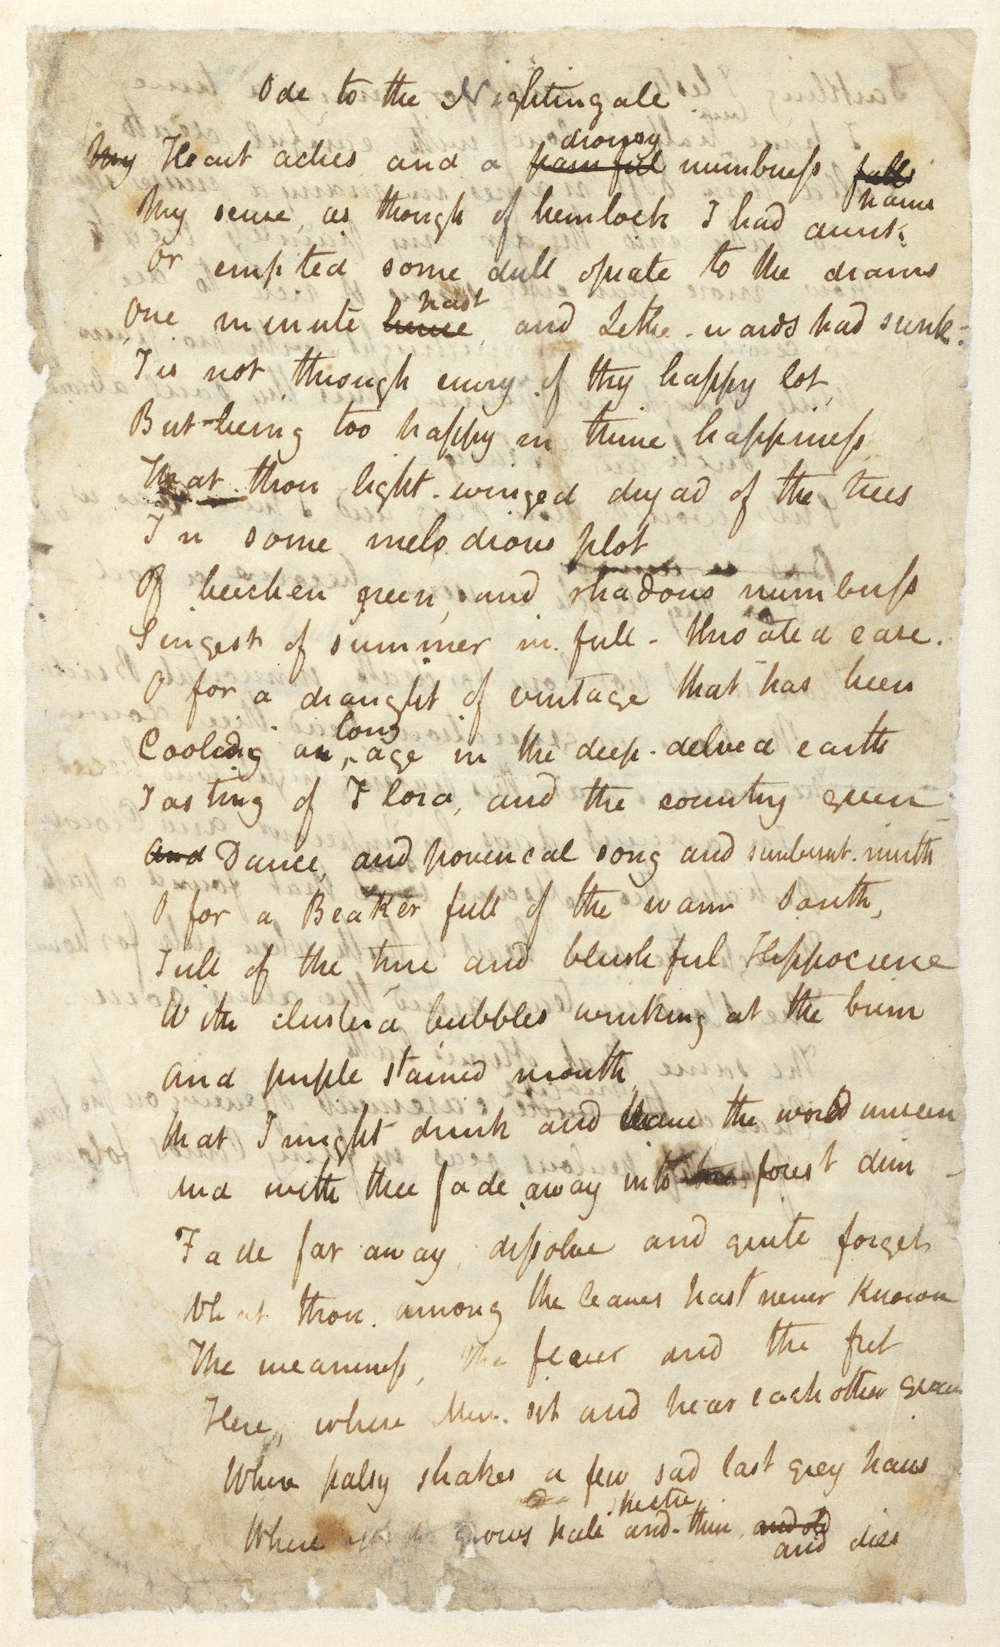 Ode to the Nightingale
drowsy
My Heart aches and a painful numbness falls
pains
My sense, as though of hemlock I had drunk,
Or emptied some dull opiate to the drains
past
One minute hence, and Lethe-wards had sunk:
Tis not through envy of thy happy lot,
But being too happy in thine happiness
That thou light-winged dryad of the trees
In some melodious plot
Of beechen green, and shadows numberless
Singest of summer in full-throated ease.
O for a draught of vintage that has been
long
Cooling an age in the deep-delved earth
Tasting of Flora, and the country green
And Dance, and provencal song and sunburnt mirth
O for a Beaker full of the warm South,
Full of the true and blushful Hippocrene
With cluster'd bubbles winking at the brim
And purple stained mouth,
That I might drink and leave the world unseen
And with thee fade away into forest dim
Fade far away, dissolve and quite forget
What thou among the leaves hast never known
The weariness, the fever and the fret
Here, where Men sit and hear each other groan
Where palsy shakes a few sad last grey hairs
spectre
Where grows pale and thin, and old
and dies